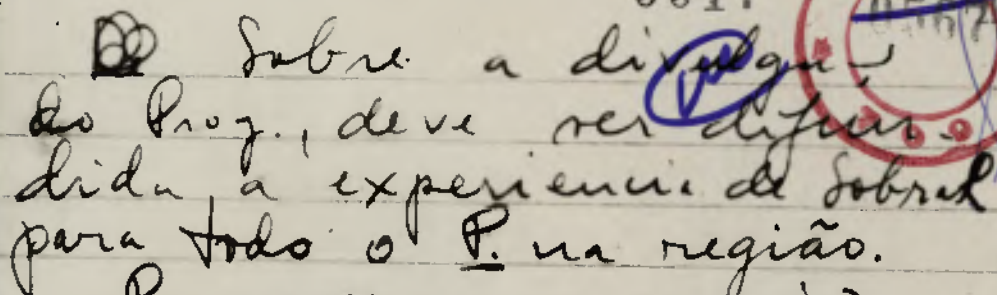 Sobre a divulga-
do Prog., deve ser difun-
dida, a experiencia de Sobral
para todo o P. na região.